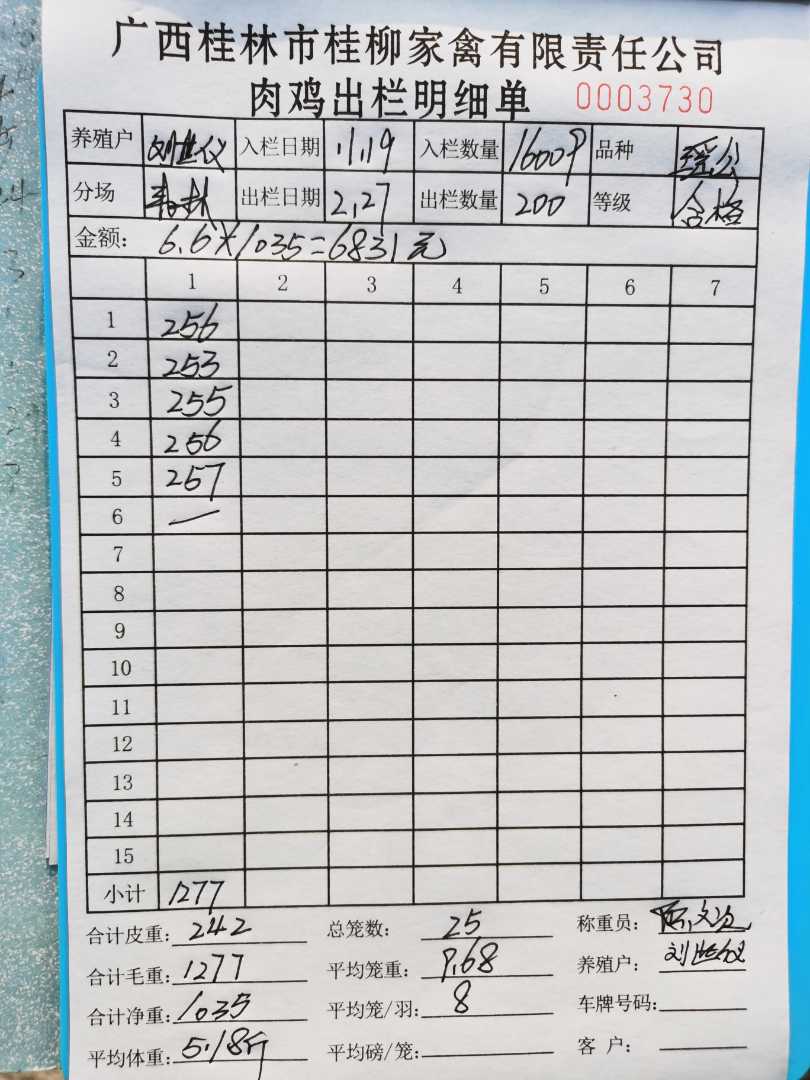 广西桂林市桂柳家禽有限责任公司
肉鸡出栏明细单 0003730
养殖户 刘世仪 入栏日期 11.19 入栏数量 16009 品种 瑶公
分场 出栏日期 2.27 出栏数量 200 等级 合格
金额: 6.6×1035=6831元
1 2 3 4 5 6 7
1 256
2 253
3 255
4 256
5 257
6 —
7
8
9
10
11
12
13
14
15
小计 1277
合计皮重: 242 总笼数: 25 称重员:
合计毛重: 1277 平均笼重: 9.68 养殖户: 刘世仪
合计净重: 1035 平均笼/羽: 8 车牌号码:
平均体重: 5.18斤 平均磅/笼: 客户: